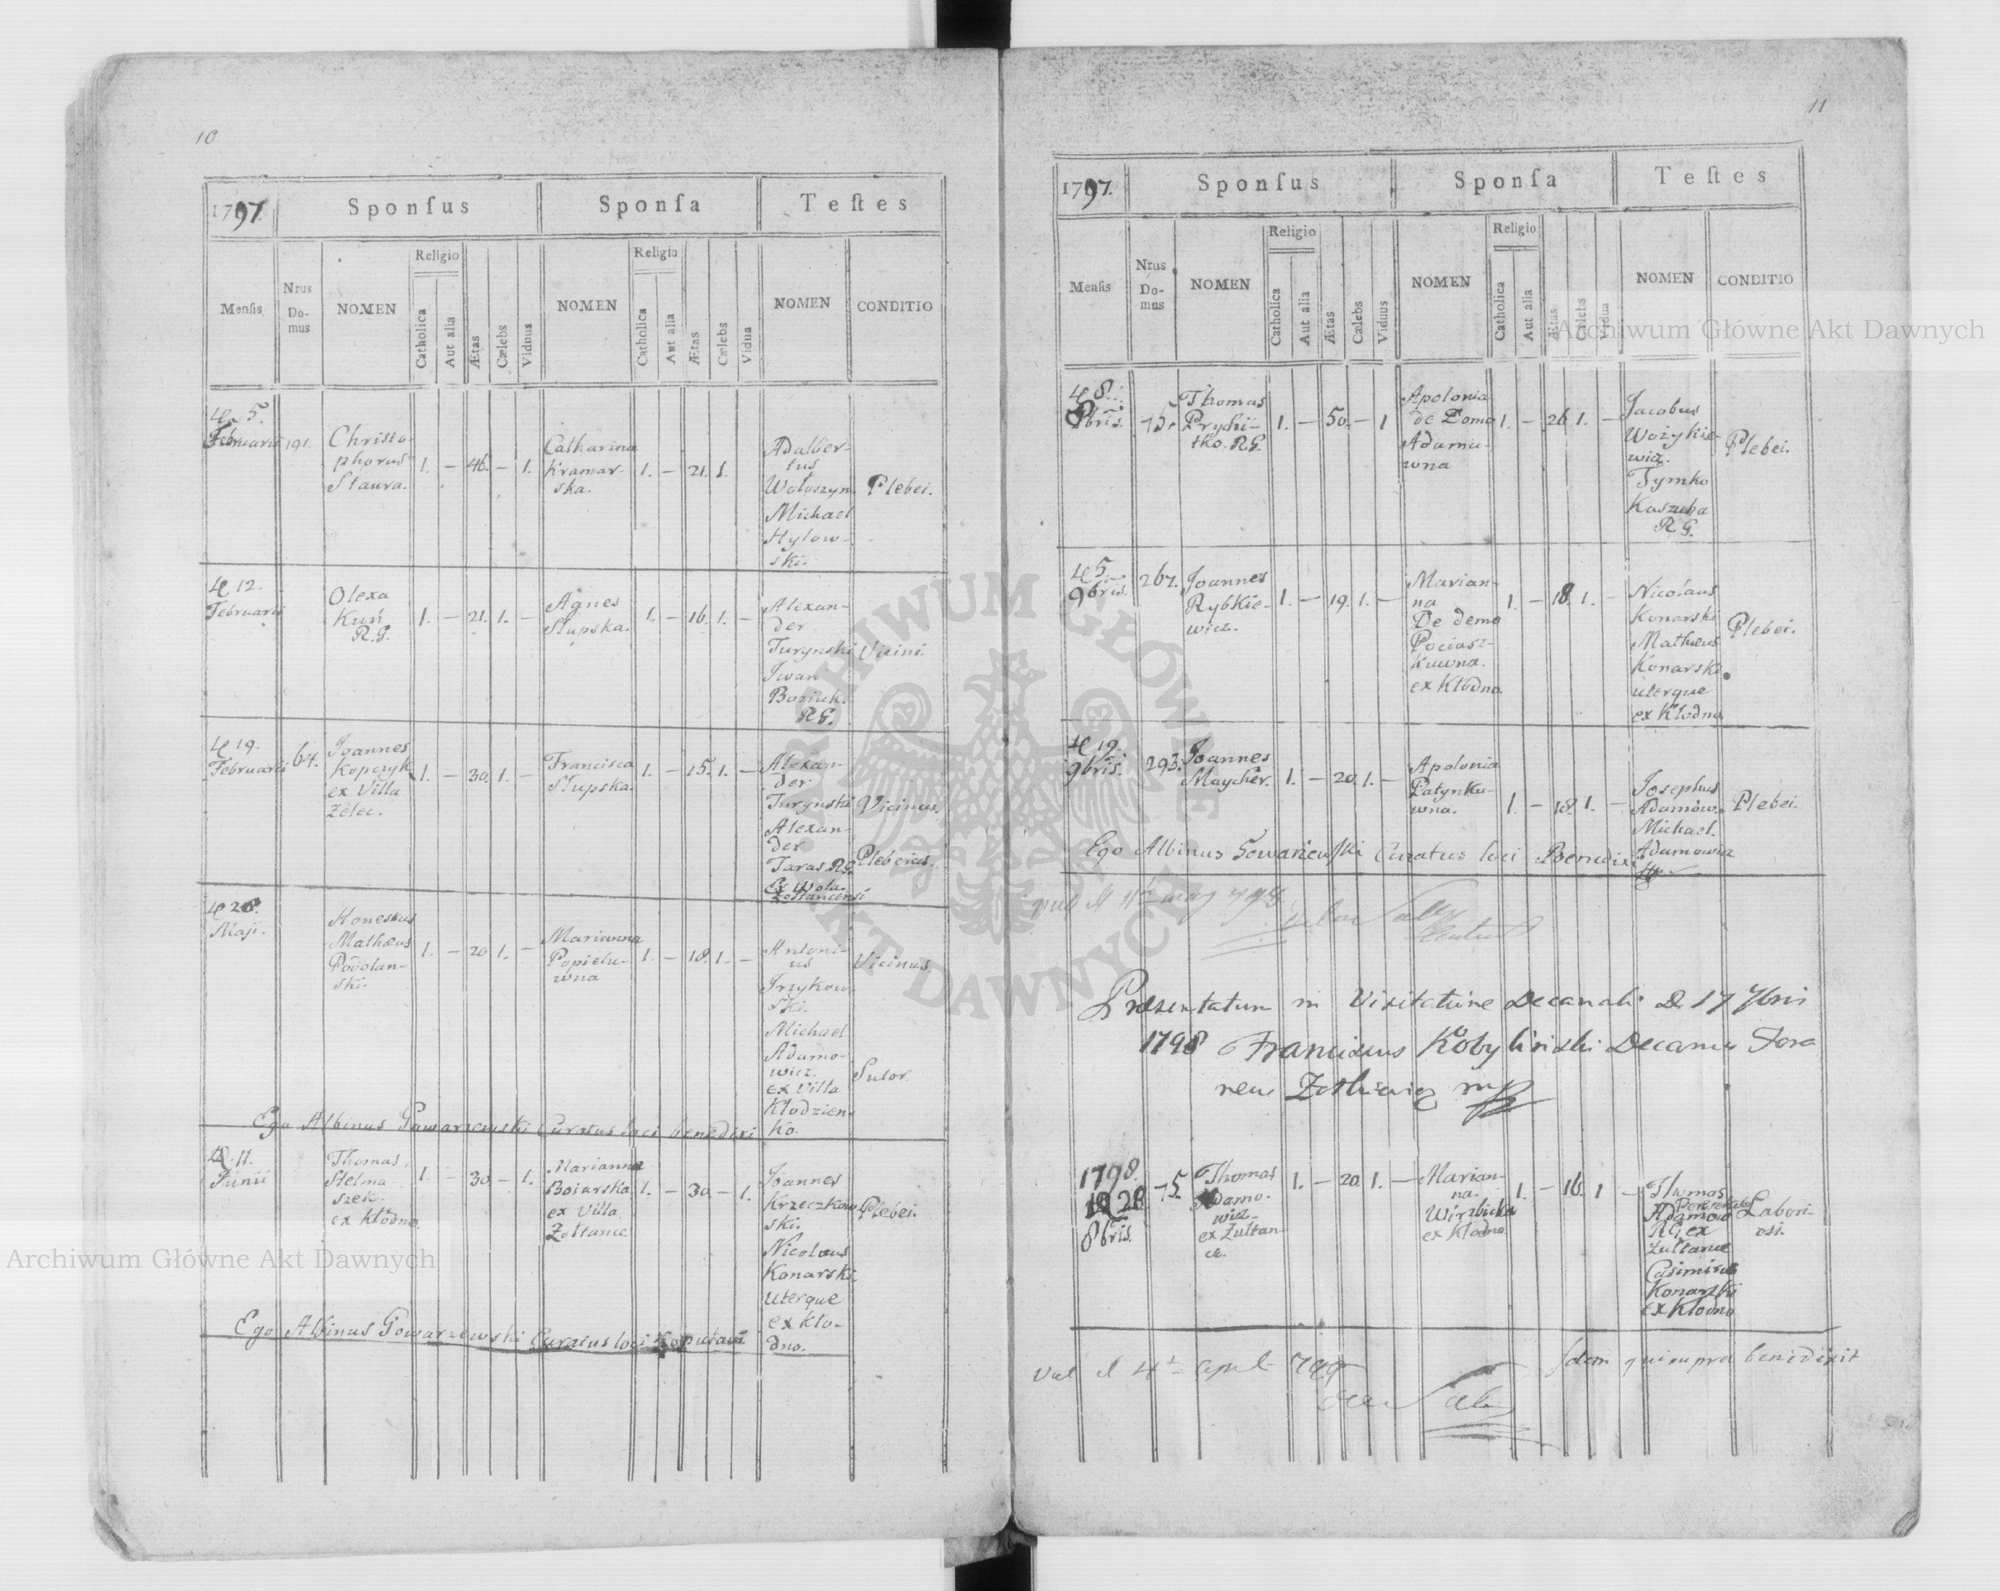 10
1797.
Sponſus
Sponſa
Teſtes
Menſis
Nrus Do-mus
NOMEN
Religio
Catholica
Aut alia
Ætas
Cælebs
Viduus
NOMEN
Religio
Catholica
Aut alia
Ætas
Cælebs
Vidua
NOMEN
CONDITIO
5.
Februarii 191.
Christo-
phorus
Staura.
1. — 46. — 1.
Catharina
Kramar-
ska.
1. — 21. 1.
Adalber-
tus
Wołoszyn.
Michael
Hylow-
ski.
Plebei.
12.
Februarii
Olexa
Kuń
R.G.
1. — 21. 1. —
Agnes
Słupska.
1. — 16. 1. —
Alexan-
der
Turynski
Iwan
R.G.
Vicini
19.
Februarii 64.
Joannes
Kopczyk
ex Villa
Zelec.
1. — 30. 1. —
Francisca
Słupska.
1. — 15. 1. —
Alexan-
der
Turynski
Alexan-
der
Taras RG.
ex Wola
Vicinus.
Plebeius.
28.
Maji.
Honestus
Mathæus
Podolan-
ski.
1. — 20 1. —
Marianna
Popielu-
wna
1. — 18. 1. —
Antoni-
us
Irzykow-
ski.
Michael
Adamo-
wicz.
ex Villa
Kłodzien-
ko.
Vicinus.
Sutor.
Ego Albinus Gowarzewski Curatus loci benedixi
11.
Junii
Thomas
Stelma
szek.
ex Kłodno.
1. — 30 — 1.
Marianna
Boiarska
ex Villa
Zołtance
1. — 30. — 1.
Joannes
Krzeczkow
ski.
Nicolaus
Konarski
uterque
ex Kło-
dno.
Plebei.
Ego Albinus Gowarzewski Curatus loci
11
1797.
Sponſus
Sponſa
Teſtes
Menſis
Nrus Do-mus
NOMEN
Religio
Catholica
Aut alia
Ætas
Cælebs
Viduus
NOMEN
Religio
Catholica
Aut alia
Ætas
Cælebs
Vidua
NOMEN
CONDITIO
8.
8bris. 75.
Thomas
Prychi-
tko. R.G.
1. — 50. — 1
Apolonia
de Domo
Adamu-
wna
1. — 26 1. —
Jacobus
Wozykie-
wicz.
Tymko
Kaszuba
R.G.
Plebei.
5.
9bris. 267.
Joannes
Rybkie-
wicz.
1. — 19. 1. —
Marian-
na
De demo
Pociasz-
kuwna.
ex Kłodno
1. — 18. 1. —
Nicolaus
Konarski
Mathæus
Konarski.
uterque
ex Kłodno
Plebei.
19.
9bris. 293.
Joannes
Maycher.
1. — 20. 1. —
Apolonia
Patynku-
wna.
1. — 18. 1. —
Josephus
Adamow.
Michael.
Adamowicz
Plebei.
Ego Albinus Gowarzewski Curatus loci Benedixi
Præsentatum in Visitatione Decanali D 17 7bris
1798 Franciscus Kobyliński Decanus Fora
neus
1798.
28
8bris. 75.
Thomas
Adamo-
wicz
ex Zułtan-
ce.
1. — 20. 1. —
Marian-
na
Wirzbicka
ex Kłodno.
1. — 16. 1 —
Thomas
Adamow
RG ex
Zułtance
Casimirus
Konarski
ex Kłodno
Labori-
osi.
Idem qui supra benedixit
Archiwum Główne Akt Dawnych
Archiwum Główne Akt Dawnych
ARCHIWUM GŁÓWNE AKT DAWNYCH